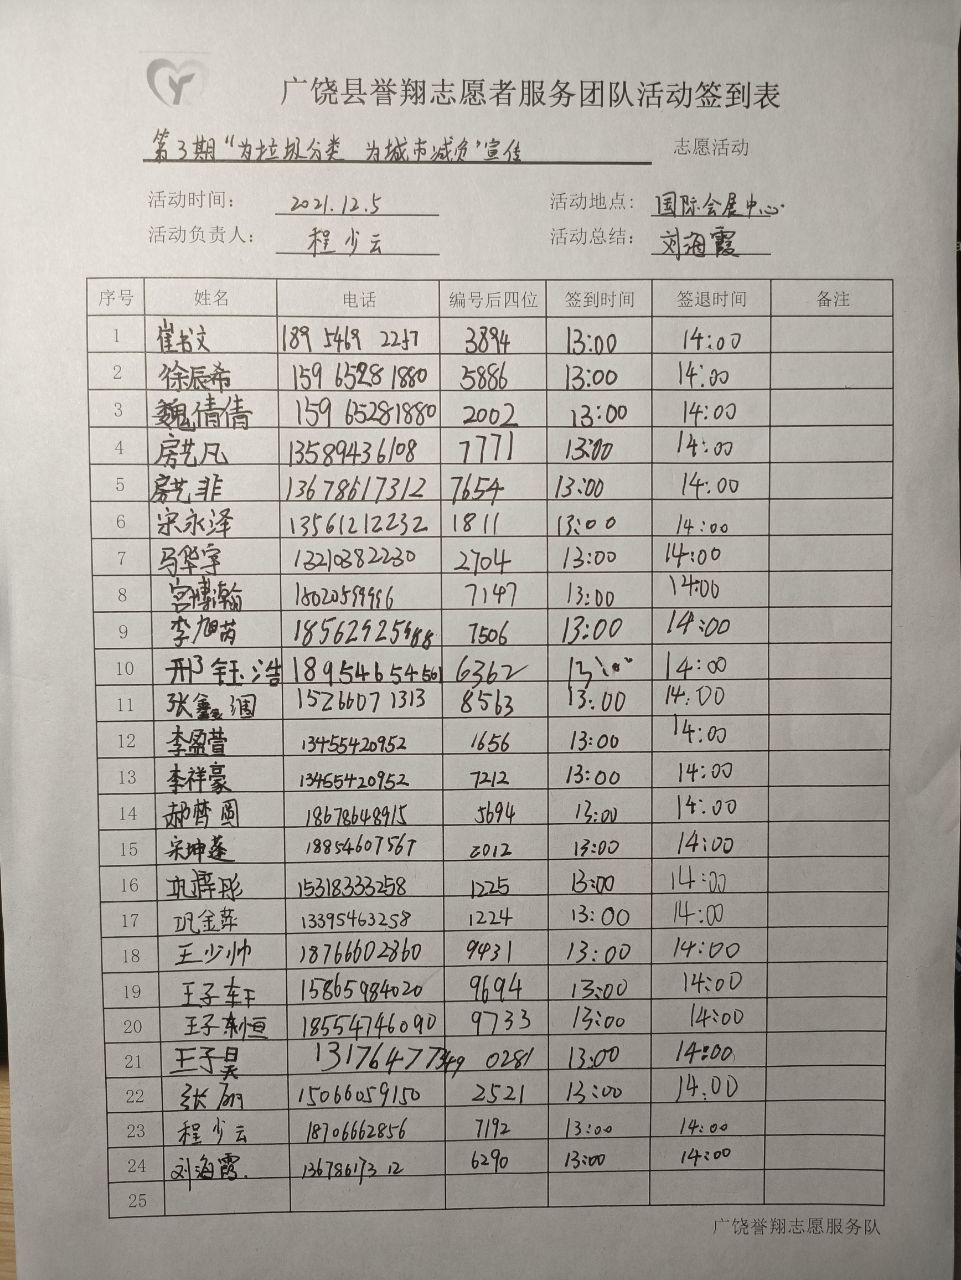 广饶县誉翔志愿者服务团队活动签到表
第3期“为垃圾分类 为城市减负”宣传 志愿活动
活动时间： 2021.12.5 活动地点: 国际会展中心
活动负责人： 程少云 活动总结： 刘海霞
序号 姓名 电话 编号后四位 签到时间 签退时间 备注
1 崔书文 189 5469 2257 3894 13:00 14:00
2 徐辰希 159 6528 1880 5886 13:00 14:00
3 魏倩倩 159 65281880 2002 13:00 14:00
4 房艺凡 13589436108 7771 13:00 14:00
5 房艺非 13678617312 7654 13:00 14:00
6 宋永泽 13561212232 1811 13:00 14:00
7 马华宇 13210382230 2704 13:00 14:00
8 宫博瀚 18020599996 7147 13:00 14:00
9 李旭芮 18562925988 7506 13:00 14:00
10 邢钰浩 18954654561 6362 13:00 14:00
11 张鑫 15266071313 8563 13:00 14:00
12 李盈萱 13455420952 1656 13:00 14:00
13 李祥豪 13455420952 7212 13:00 14:00
14 郝梦圆 18678648915 5694 13:00 14:00
15 宋坤蓬 18854607567 2012 13:00 14:00
16 15318333258 1225 13:00 14:00
17 巩金萍 13395463258 1224 13:00 14:00
18 王少帅 18766602860 9431 13:00 14:00
19 王子轩 15865984020 9694 13:00 14:00
20 王子恒 18554746090 9733 13:00 14:00
21 王子昊 13176477349 0281 13:00 14:00
22 张丽 15066059150 2521 13:00 14:00
23 程少云 18706662856 7192 13:00 14:00
24 刘海霞. 136786173 12 6290 13:00 14:00
25
广饶誉翔志愿服务队